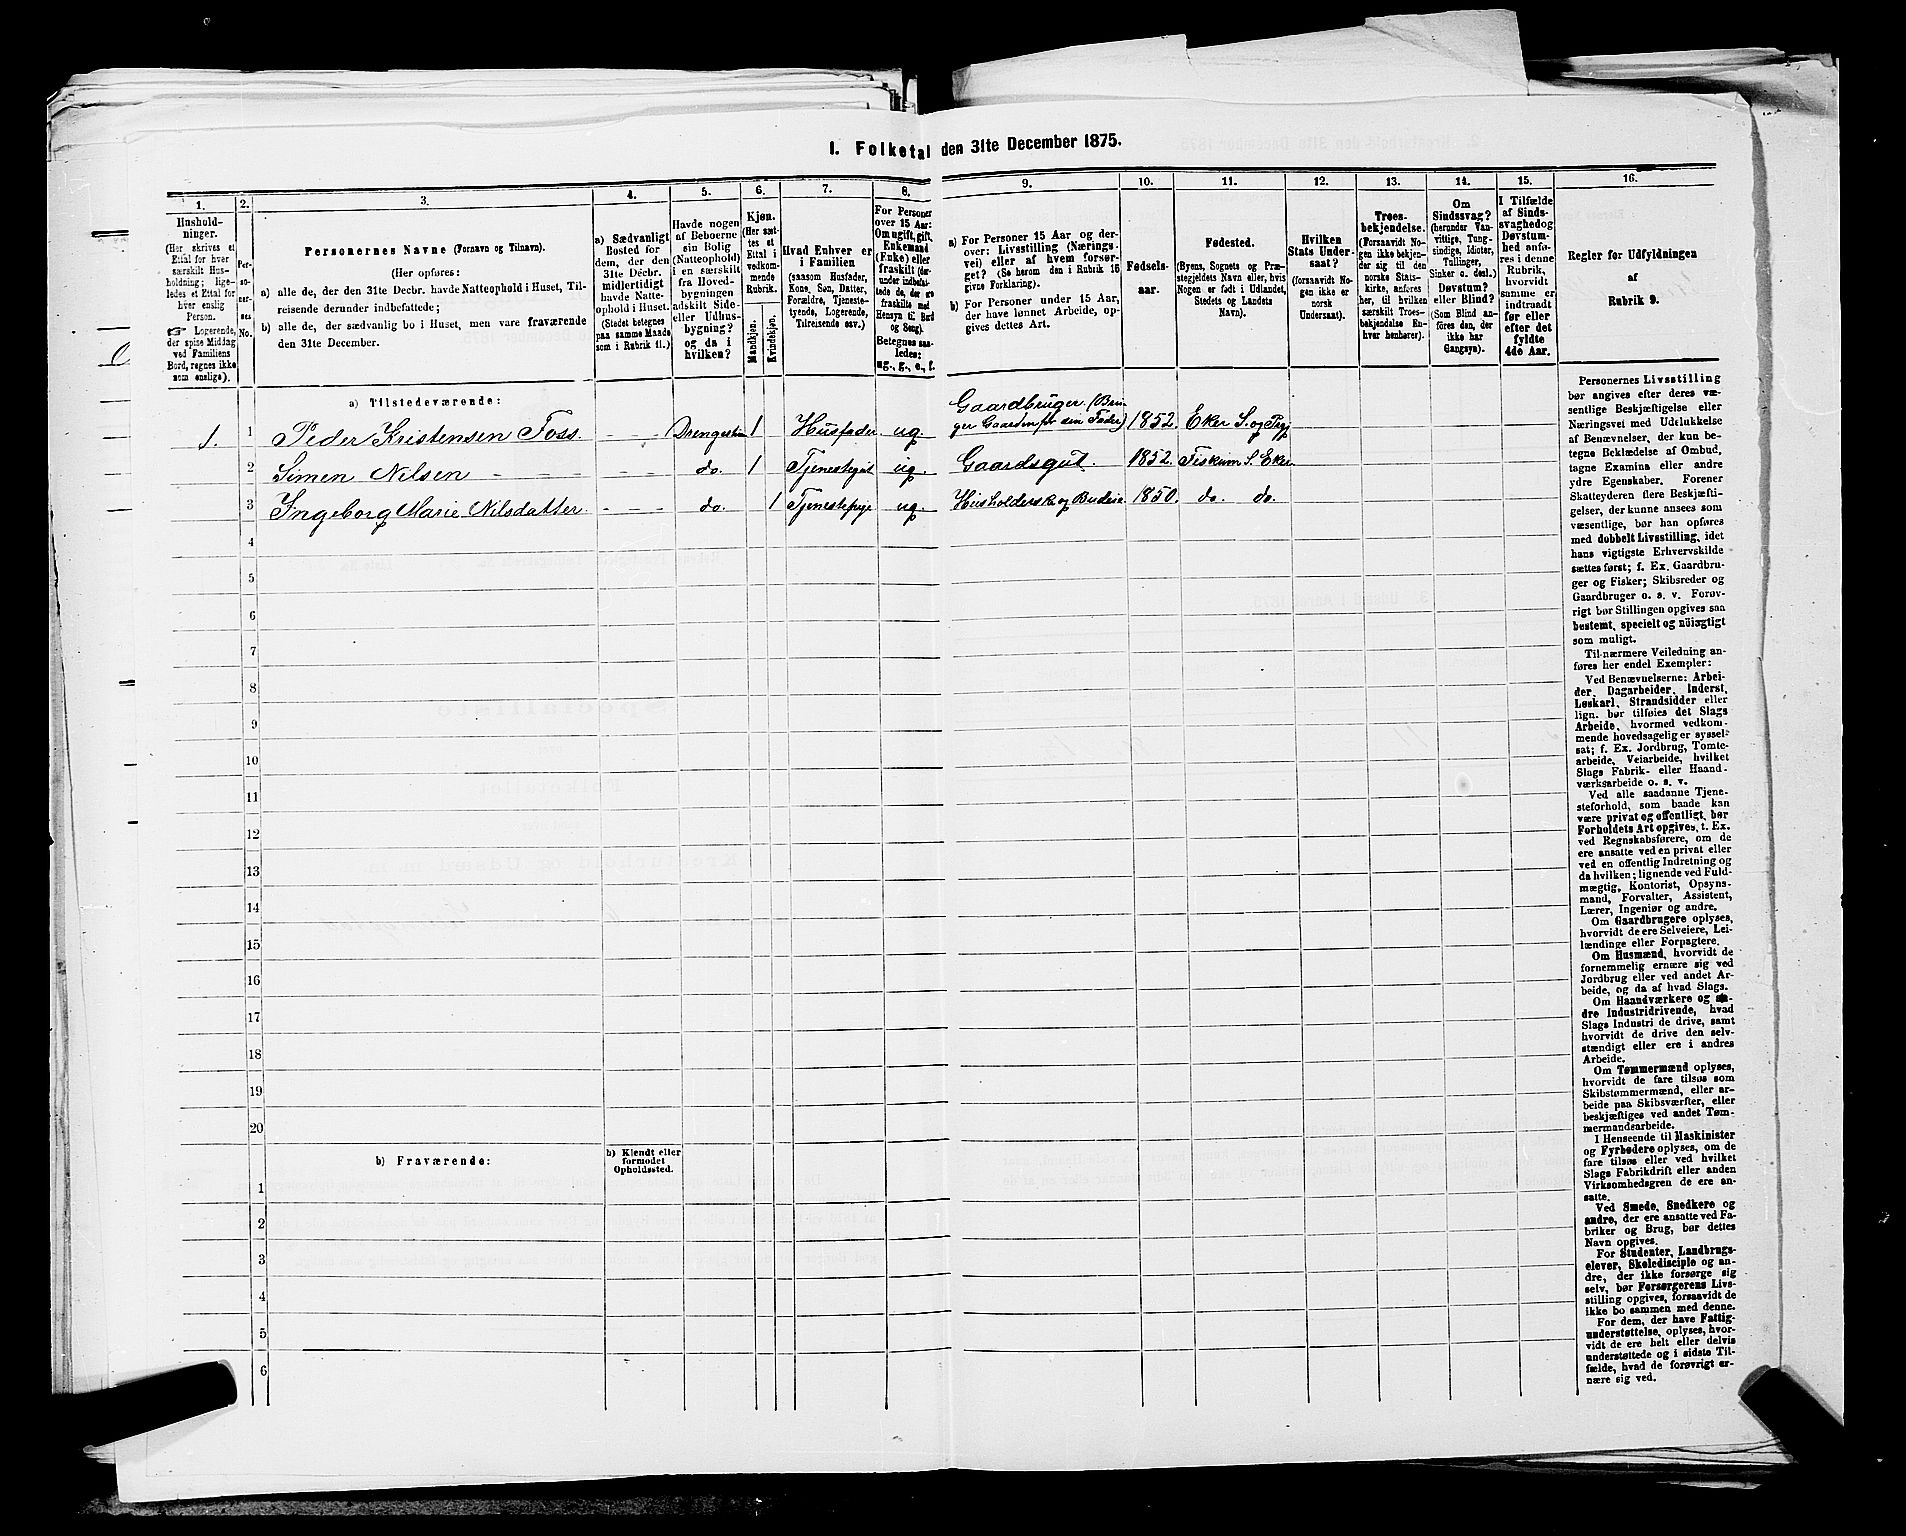 I. Folketal den 31te December 1875.
1.
Hushold-
ninger.
(Her skrives et
Ettal for hver
særskilt Hus-
holdning; lige-
ledes et Ettal for
hver enslig
Person.
☞ Logerende,
der spise Middag
ved Familiens
Bord, regnes ikke
som enslige).
2.
Per-
soner-
nes
No.
3.
Personernes Navne (Fornavn og Tilnavn).
(Her opføres:
a) alle de, der den 31te Decbr. havde Natteophold i Huset, Til-
reisende derunder indbefattede;
b) alle de, der sædvanlig bo i Huset, men vare fraværende
den 31te December.
4.
a) Sædvanligt
Bosted for
dem, der den
31te Decbr.
midlertidigt
havde Natte-
ophold i Huset.
(Stedet betegnes
paa samme Maade
som i Rubrik 11.)
5.
Havde nogen
af Beboerne
sin Bolig
(Natteophold)
i en særskilt
fra Hoved-
bygningen
adskilt Side-
eller Udhus-
bygning?
og da i
hvilken?
6.
Kjøn.
(Her sæt-
tes et
Ettal i
vedkom-
mende
Rubrik.
Mandkjøn.
Kvindekjøn.
7.
Hvad Enhver er
i Familien
(saasom Husfader,
Kone, Søn, Datter,
Forældre, Tjeneste-
tyende, Logerende,
Tilreisende osv.)
8.
For Personer
over 15 Aar:
Om ugift, gift,
Enkemand
(Enke) eller
fraskilt (der-
under indbefat-
tede de, der ere
fraskilte med
Hensyn til Bord
og Seng).
Betegnes saa-
ledes:
ug., g., e., f.
9.
a) For Personer 15 Aar og der-
over: Livsstilling (Nærings-
vei) eller af hvem forsør-
get? (Se herom den i Rubrik 16
givne Forklaring).
b) For Personer under 15 Aar,
der have lønnet Arbeide, op-
gives dettes Art.
10.
Fødsels-
aar.
11.
Fødested.
(Byens, Sognets og Præ-
stegjeldets Navn eller, hvis
Nogen er født i Udlandet,
Stedets og Landets
Navn).
12.
Hvilken
Stats Under-
saat?
(forsaavidt No-
gen ikke er
norsk
Undersaat).
13.
Troes-
bekjendelse.
(Forsaavidt No-
gen ikke bekjen-
der sig til den
norske Stats-
kirke, anføres
her, til hvilken
særskilt Troes-
bekjendelse En-
hver henhører).
14.
Om
Sindssvag?
(herunder Van-
vittige, Tung-
sindige, Idioter,
Tullinger,
Sinker o. desl.)
Døvstum?
eller Blind?
(Som Blind an-
føres den, der
ikke har
Gangsyn).
15.
I Tilfælde
af Sinds-
svaghed og
Døvstum-
hed anfø-
res i denne
Rubrik,
hvorvidt
samme er
indtraadt
før eller
efter det
fyldte
4de Aar.
16.
Regler for Udfyldningen
af
Rubrik 9.
a) Tilstedeværende:
1. 1 Peder Kristensen Foss. 1 Husfader ug. Gaardbruger (Bru-
ger Gaarden for sin Fader) 1852. Eker S. og
2 Simen Nilsen do. 1 Tjenestegut ug. Gaardsgut. 1852. Fiskum S. Eker
3 Ingeborg Marie Nilsdatter do. 1 Tjenestepige ug. 1850. do. do.
4
5
6
7
8
9
10
11
12
13
14
15
16
17
18
19
20
b) Fraværende:
b) Kjendt eller
formodet
Opholdssted.
1
2
3
4
5
6
Personernes Livsstilling
bør angives efter deres væ-
sentlige Beskjæftigelse eller
Næringsvei med Udelukkelse
af Benævnelser, der kun be-
tegne Beklædelse af Ombud,
tagne Examina eller andre
ydre Egenskaber. Forener
Skatteyderen flere Beskjæfti-
gelser, der kunne ansees som
væsentlige, bør han opføres
med dobbelt Livsstilling, idet
hans vigtigste Erhvervskilde
sættes først; f. Ex. Gaardbru-
ger og Fisker; Skibsreder og
Gaardbruger o. s. v. Forøv-
rigt bør Stillingen opgives saa
bestemt, specielt og nøiagtigt
som muligt.
Til nærmere Veiledning an-
føres her endel Exempler:
Ved Benævnelserne: Arbei-
der, Dagarbeider, Inderst,
Løskarl, Strandsidder eller
lign. bør tilføies det Slags
Arbeide, hvormed vedkom-
mende hovedsagelig er syssel-
sat; f. Ex. Jordbrug, Tomte-
arbeide, Veiarbeide, hvilket
Slags Fabrik- eller Haand-
værksarbeide o. s. v.
Ved alle saadanne Tjene-
steforhold, som baade kan
være privat og offentligt, bør
Forholdets Art opgives, f. Ex.
ved Regnskabsførere, om de
ere ansatte ved en privat eller
ved en offentlig Indretning og
da hvilken; lignende ved Fuld-
mægtig, Kontorist, Opsyns-
mand, Forvalter, Assistent,
Lærer, Ingeniør og andre.
Om Gaardbrugere oplyses,
hvorvidt de ere Selveiere, Lei-
lændinge eller Forpagtere.
Om Husmænd, hvorvidt de
fornemmelig ernære sig ved
Jordbrug eller ved andet Ar-
beide, og da af hvad Slags.
Om Haandværkere og an-
dre Industridrivende, hvad
Slags Industri de drive, samt
hvorvidt de drive den selv-
stændigt eller ere i andres
Arbeide.
Om Tømmermænd oplyses,
hvorvidt de fare tilsøs som
Skibstømmermænd, eller ar-
beide paa Skibsværfter, eller
beskjæftiges ved andet Tøm-
mermandsarbeide.
I Henseende til Maskinister
og Fyrbødere oplyses, om de
fare tilsøs eller ved hvilket
Slags Fabrikdrift eller anden
Virksomhedsgren de ere an-
satte.
Ved Smede, Snedkere og
andre, der ere ansatte ved Fa-
briker og Brug, bør dettes
Navn opgives.
For Studenter, Landbrugs-
elever, Skoledisciple og an-
dre, der ikke forsørge sig
selv, bør Forsørgerens Livs-
stilling opgives, forsaavidt de
ikke bo sammen med denne.
For dem, der have Fattig-
understøttelse, oplyses, hvor-
vidt de ere helt eller delvis
understøttede og i sidste Til-
fælde, hvad de forøvrigt er-
nære sig ved.